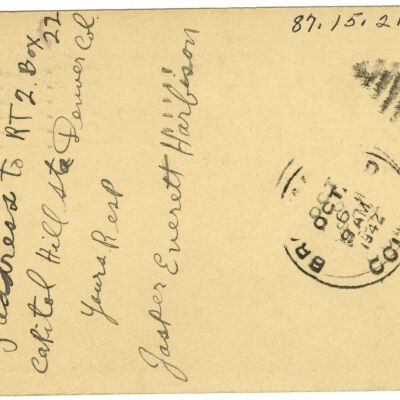 87.15.21
address to RT 2. Box 22
Capitol Hill Sta Denver Col.
Yours Resp
Jasper Everett Harbison
OCT
9 AM
1942